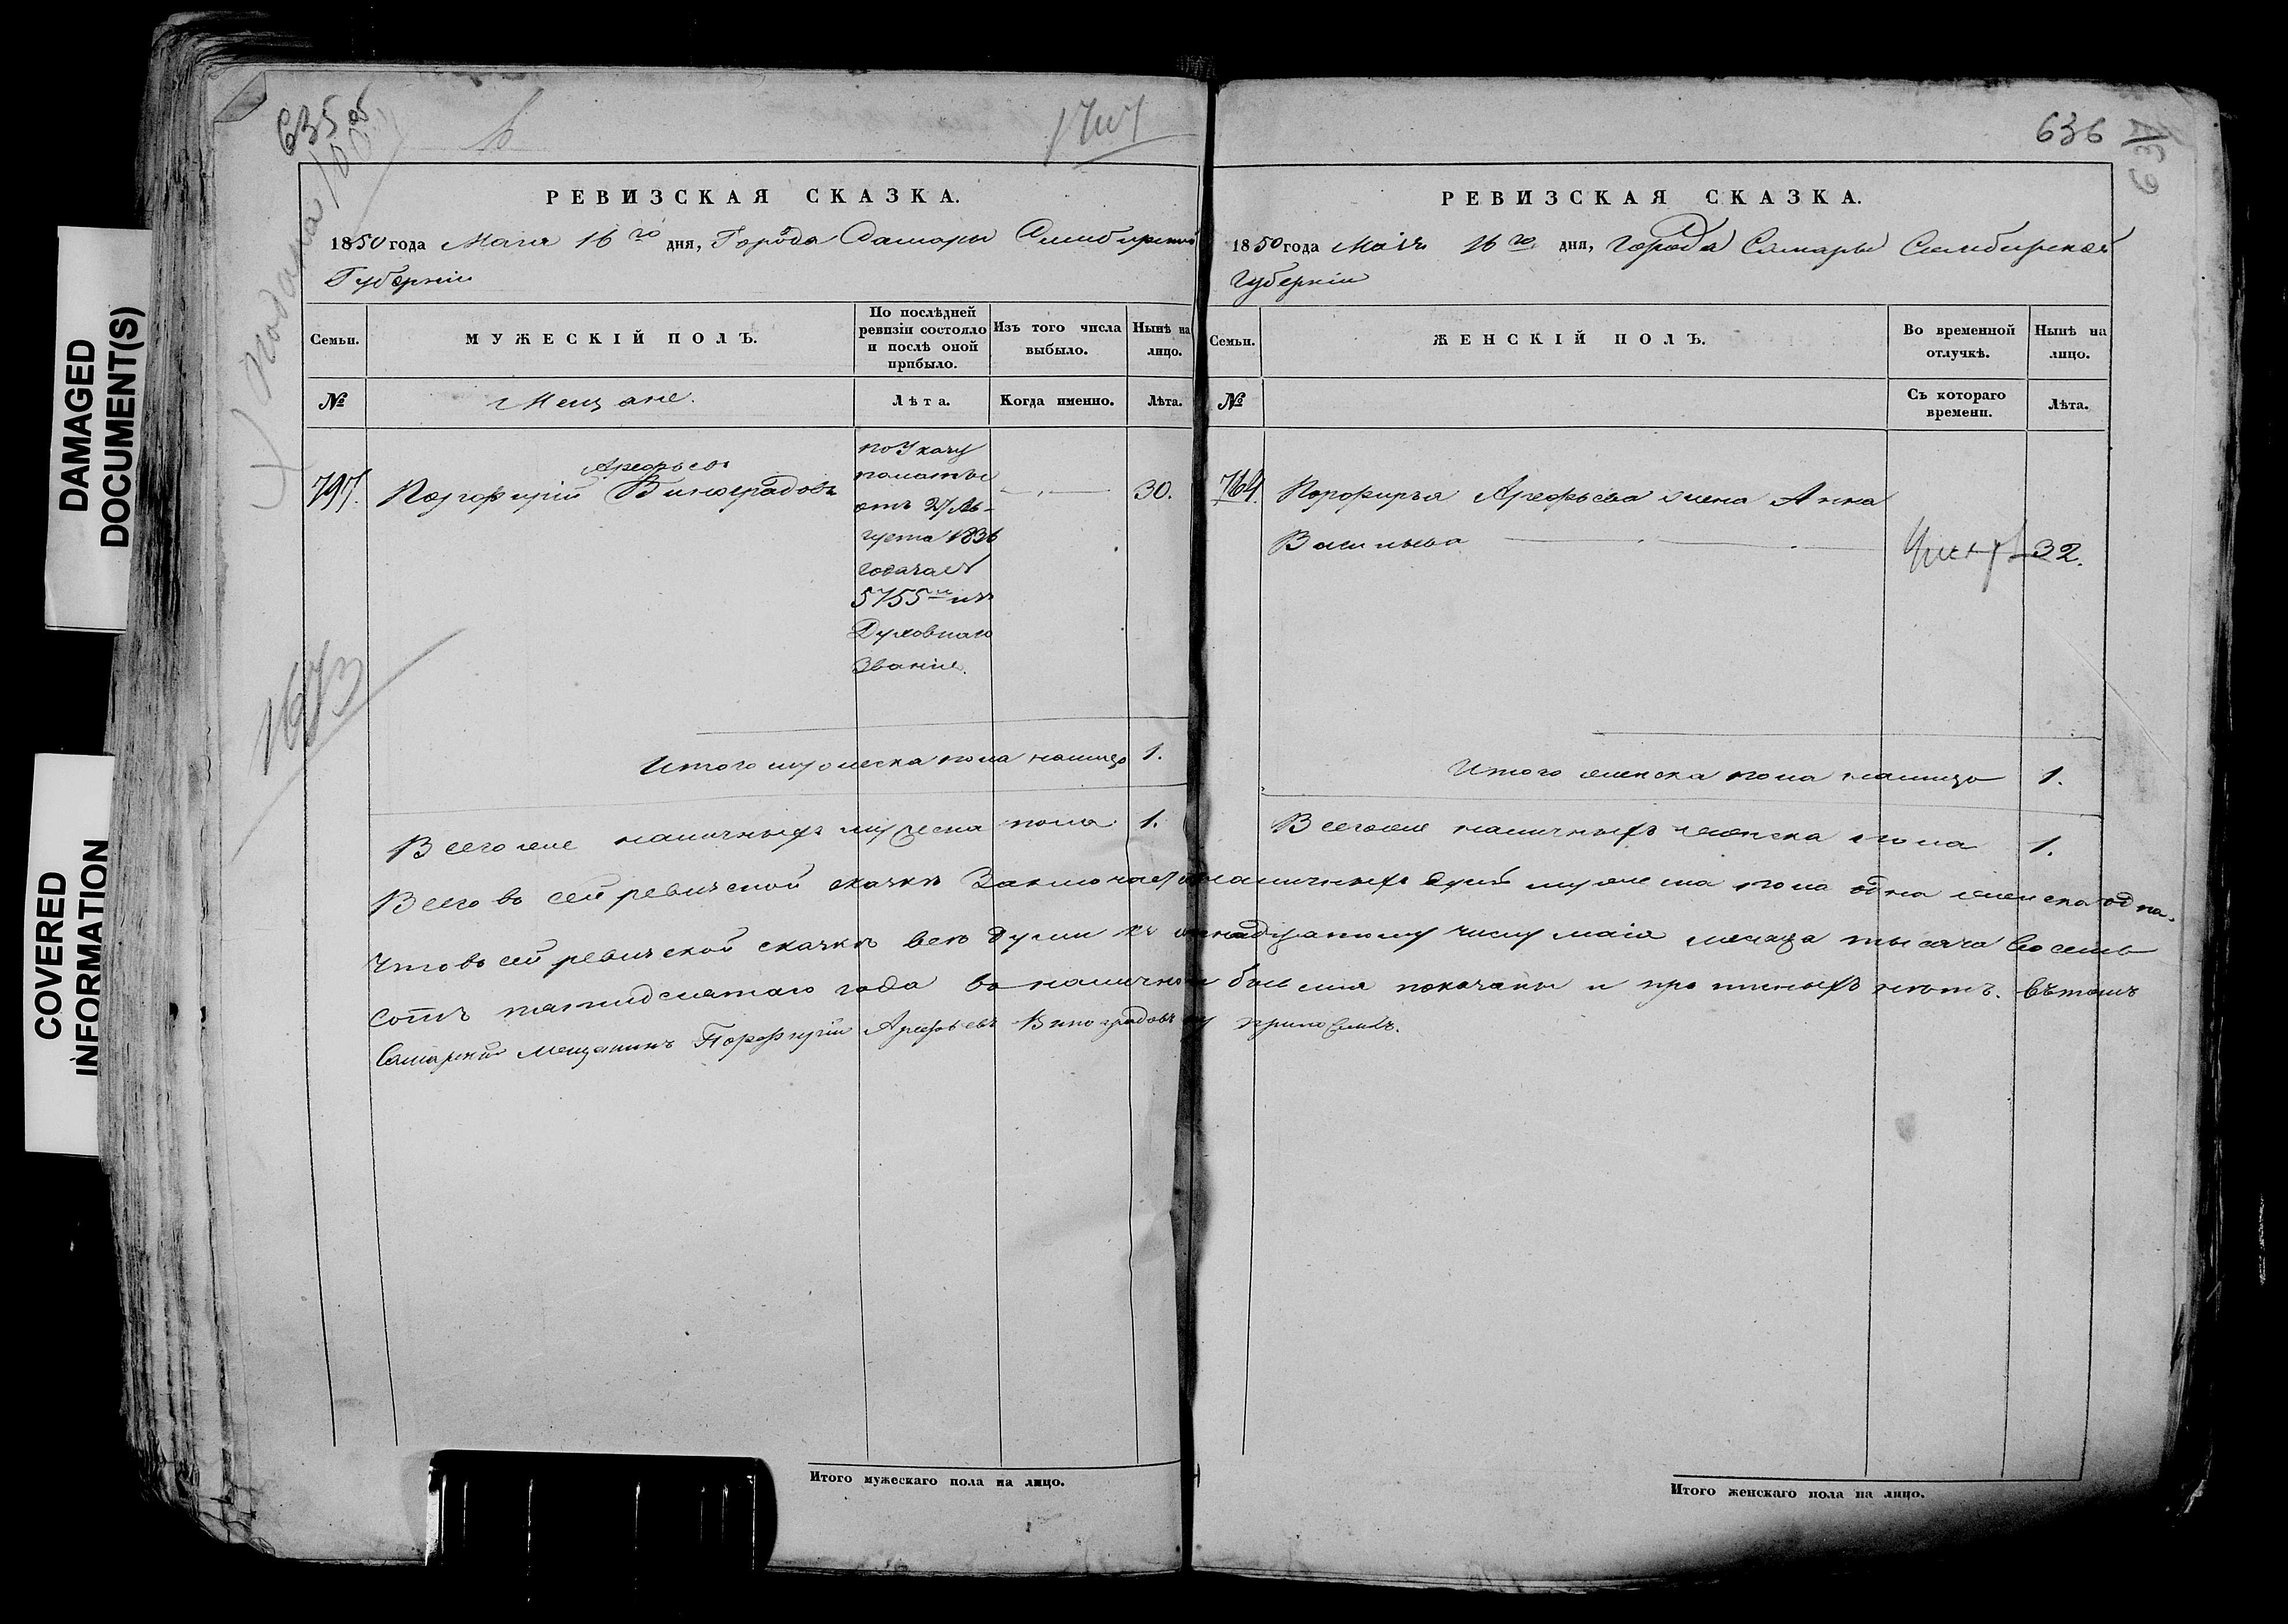 DAMAGED
DOCUMENT(S)
COVERED
INFORMATION
635 об
1673
РЕВИЗСКАЯ СКАЗКА.
1850 года Маія 16го дня, Города Самары Симбирской
Губерніи
Семьи.
МУЖЕСКІЙ ПОЛЪ.
По послѣдней
ревизіи состояло
и послѣ оной
прибыло.
Изъ того числа
выбыло.
Нынѣ на
лицо.
№
Мещане.
Лѣта.
Когда именно.
Лѣта.
797.
Арефьевъ
Порфирій Виноградовъ
по Указу
палаты
отъ 27 Ав-
густа 1836
года за №
5755м изъ
Духовнаго
Званія.
30.
Итого мужеска пола налицо 1.
Всего же наличныхъ мужеска пола 1.
636
637
РЕВИЗСКАЯ СКАЗКА.
1850 года Маія 16го дня, Города Самары Симбирской
Губерніи
Семьи.
ЖЕНСКІЙ ПОЛЪ.
Во временной
отлучкѣ.
Нынѣ на
лицо.
№
Съ котораго
времени.
Лѣта.
764.
Порфирья Арефьева жена Анна
Васильева
32.
Итого женска пола налицо 1.
Всего же наличныхъ женска пола 1.
Всего въ сей ревизской сказкѣ заключается наличныхъ душъ мужеска пола одна женска одна.
Что въ сей ревизской сказкѣ всѣ души къ шестнадцатому числу маія месяца тысяча восемь
сотъ пятидесятаго года въ наличности бывшія показаны и прописныхъ нѣтъ. въ томъ
Самарскій мещанинъ Порфирій Арефьевъ Виноградовъ
Итого мужескаго пола на лицо.
Итого женскаго пола на лицо.